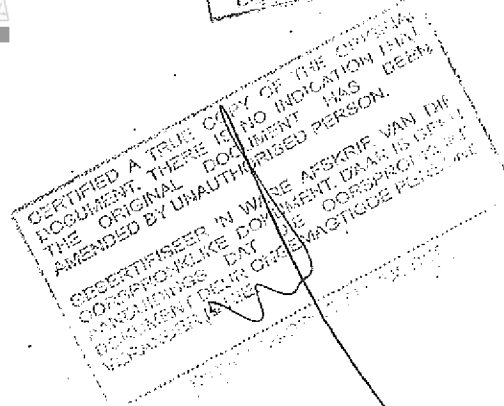 CERTIFIED A TRUE COPY OF THE ORIGINAL
DOCUMENT. THERE IS NO INDICATION THAT
THE ORIGINAL DOCUMENT HAS BEEN
AMENDED BY UNAUTHORISED PERSON.
GESERTIFISEER 'N WARE AFSKRIF VAN DIE
OORSPRONKLIKE DOKUMENT. DAAR IS GEEN
AANDUIDINGS DAT DIE OORSPRONKLIKE
DOKUMENT DEUR ONGEMAGTIGDE PERSONE